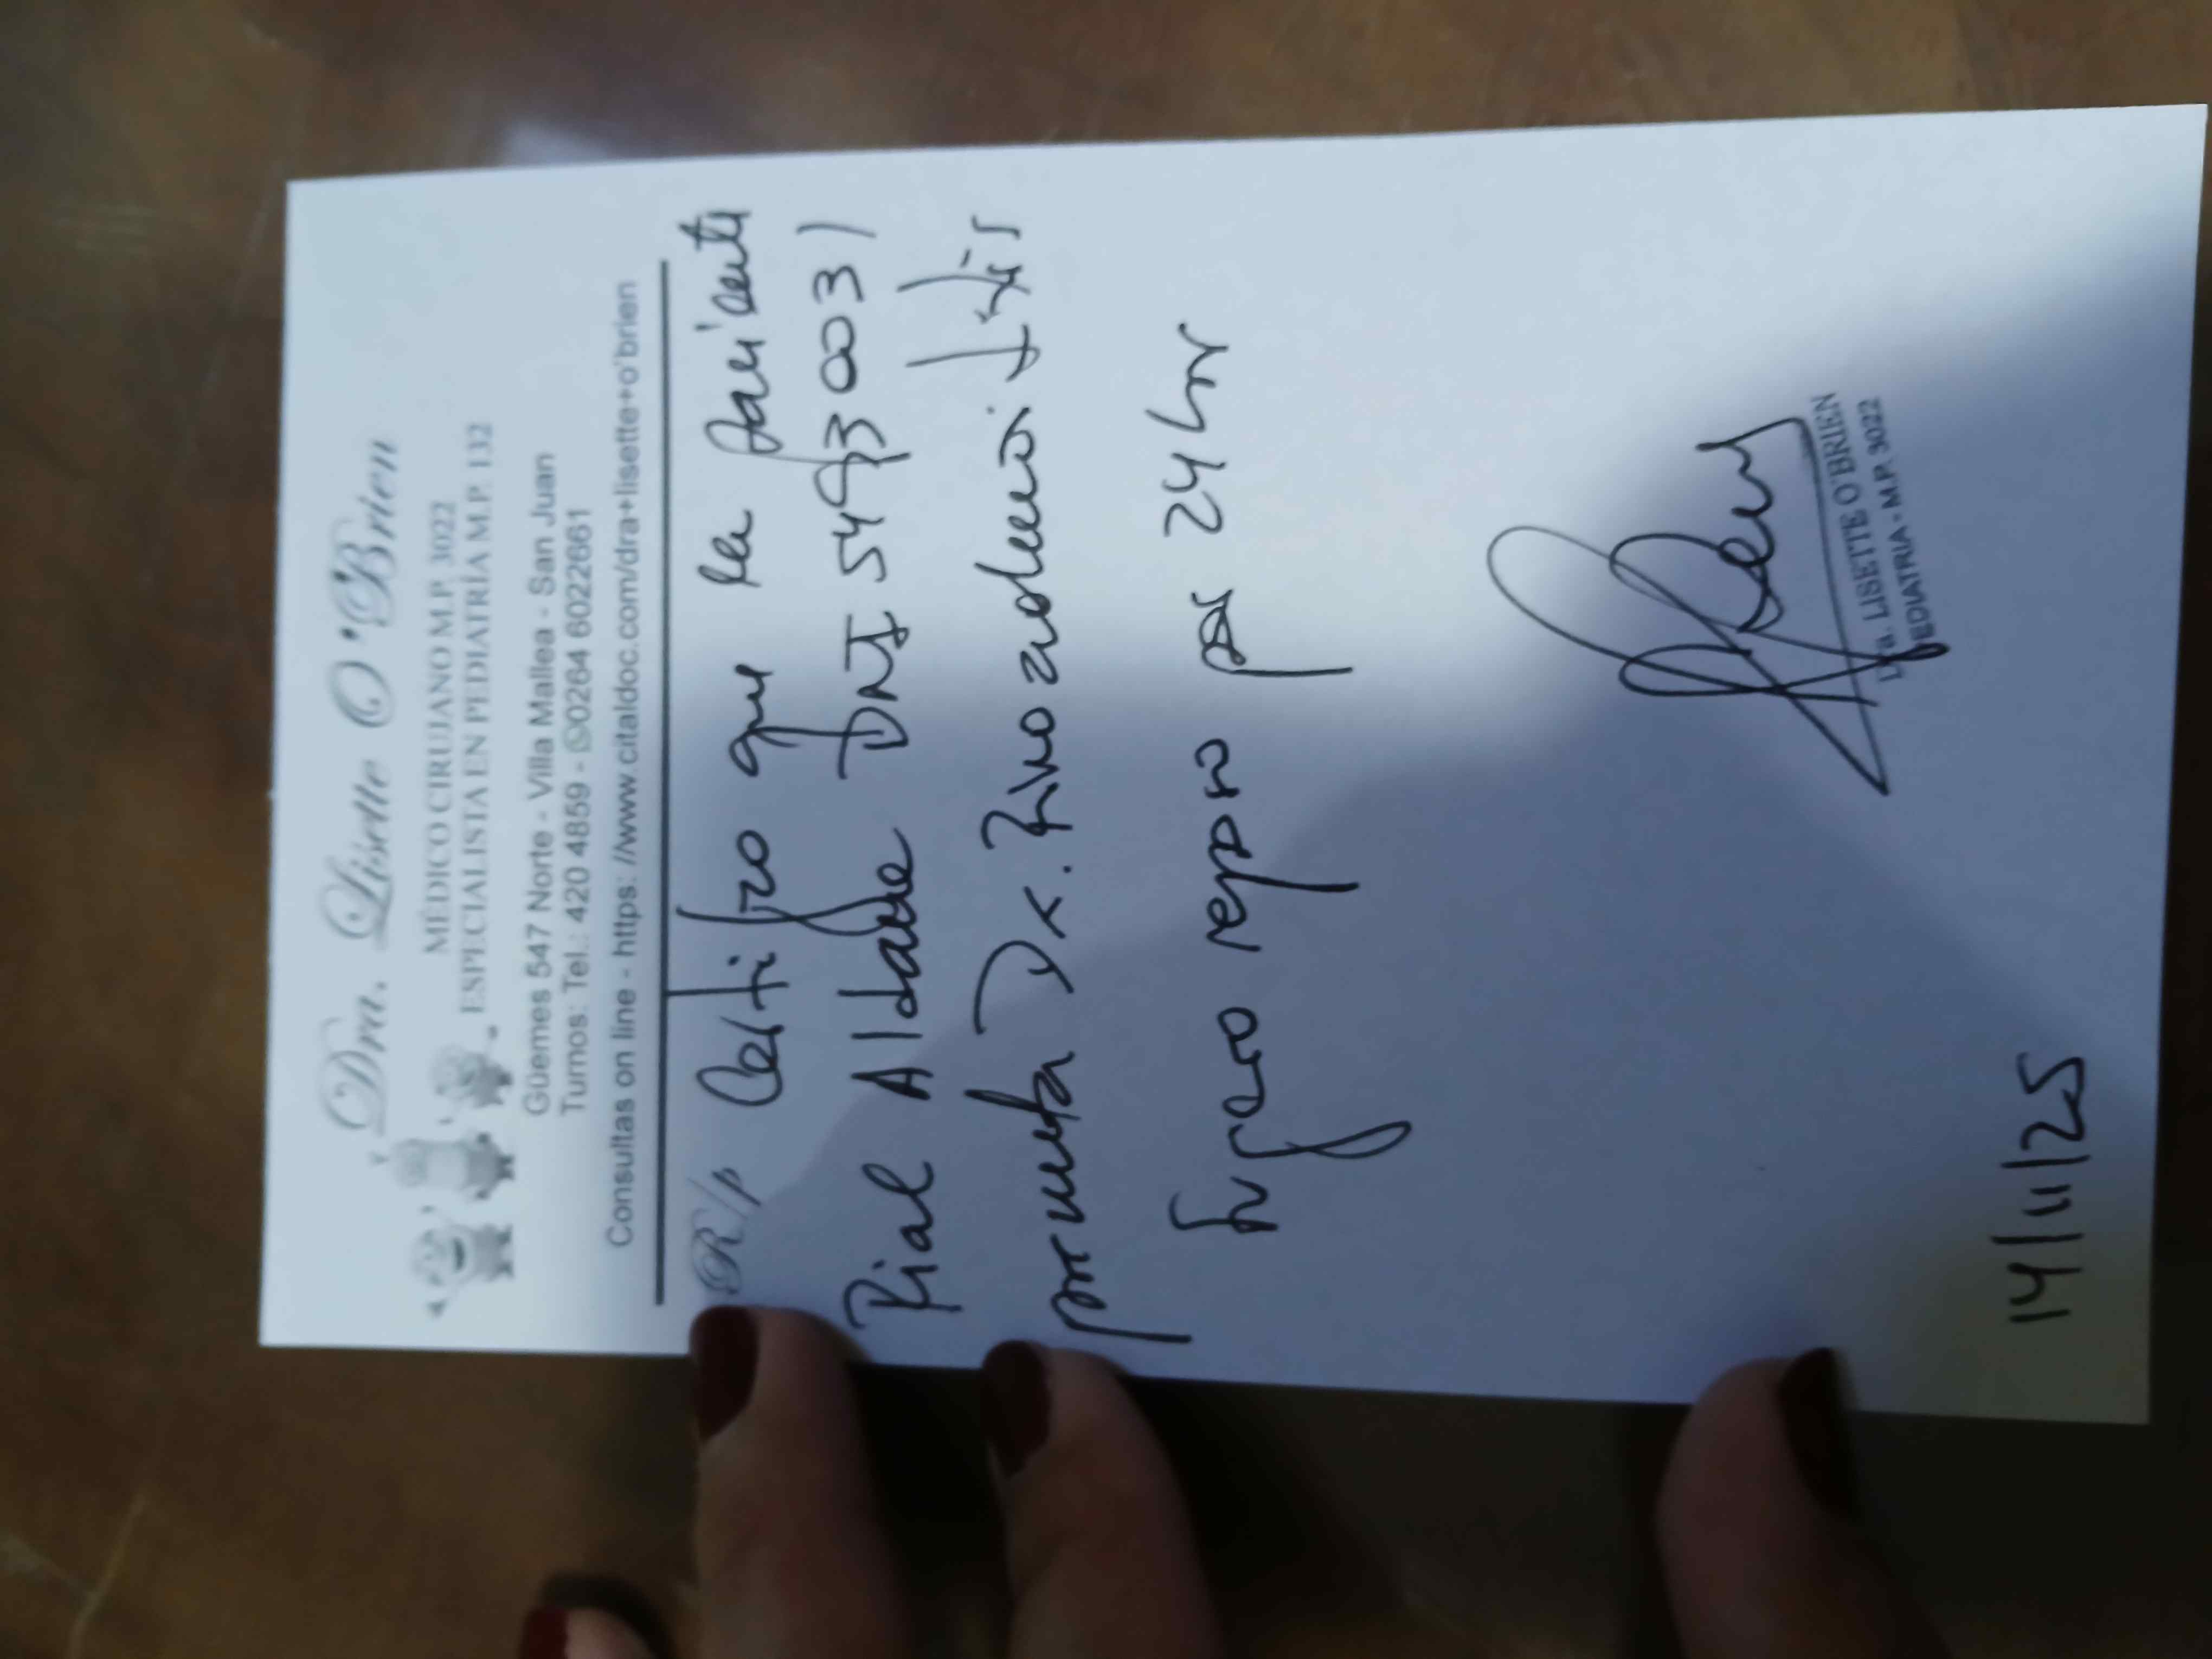 Dra. Lisette O'Brien
MÉDICO CIRUJANO M.P. 3022
ESPECIALISTA EN PEDIATRÍA M.P. 132
Güemes 547 Norte - Villa Mallea - San Juan
Turnos: Tel.: 420 4859 - 0264 6022661
Consultas on line - https: //www.citaldoc.com/dra+lisette+o'brien
R/p Certifico que la paciente
Rial Aldana DNI 54930031
presenta Dx. Rinoadenoiditis
Sugiero reposo por 24 hr
Dra. LISETTE O'BRIEN
PEDIATRIA - M.P. 3022
14/11/25